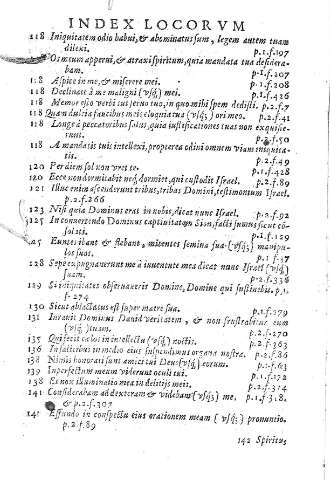 INDEX LOCORVM
118 Iniquitatem odio habui, & abominatus sum, legem autem tuam
dilexi. p.1.f.197
Os meum apperui, & atraxi spiritum, quia mandata tua desidera-
bam. p.1.f.207
118 Aspice in me, & miserere mei. p.1.f.208
118 Declinate à me maligni (vsq;) mei. p.1.f.426
118 Memor esto verbi tui seruo tuo, in quo mihi spem dedisti. p.2.f.7
118 Quam dulcia faucibus meis eloquia tua (vsq;) ori meo. p.2.f.41
118 Longè à peccatoribus salus, quia iustificationes tuas non exquisie-
runt. f.50
118 A mandatis tuis intellexi, propterea odiui omnem viam iniquita-
tis. p.2.f.49
120 Per diem sol non vret te. p.1.f.428
120 Ecce non dormitabit neq; dormiet, qui custodit Israel. p.2.f.89
121 Illuc enim ascenderunt tribus, tribus Domini, testimonium Israel.
p.2.f.266
123 Nisi quia Dominus erat in nobis, dicat nunc Israel. p.2.f.92
125 In conuertendo Dominus captiuitatem Sion, facti sumus sicut con-
solati. p.1.f.129
125 Euntes ibant & flebant, mittentes semina sua (vsq;) manipu-
los suos. p.1.f.37
128 Sepè expugnauerunt me à iuuentute mea dicat nunc Israel (vsq;)
suam. p.2.f.336
129 Si iniquitates obseruaueris Domine, Domine quis sustinebit. p.1.
f.274
130 Sicut ablactatus est super matre sua. p.1.f.179
131 Iurauit Dominus Dauid veritatem, & non frustrabitur eum
(vsq;) suam. p.2.f.270
135 Qui fecit cælos in intellectu (vsq;) noctis. p.2.f.263
136 In salicibus in medio eius suspendimus organa nostra. p.2.f.86
138 Nimis honorati sunt amici tui Deus (vsq;) eorum. p.1.f.63
139 Imperfectum meum viderunt oculi tui. p.1.f.172
138 Et nox illuminatio mea in delitijs meis. p.2.f.314
141 Considerabam ad dexteram & videbam (vsq;) me. p.1.f.318.
& p.2.f.307
141 Effundo in conspectu eius orationem meam (vsq;) pronuncio.
p.2.f.89
142 Spiritus,